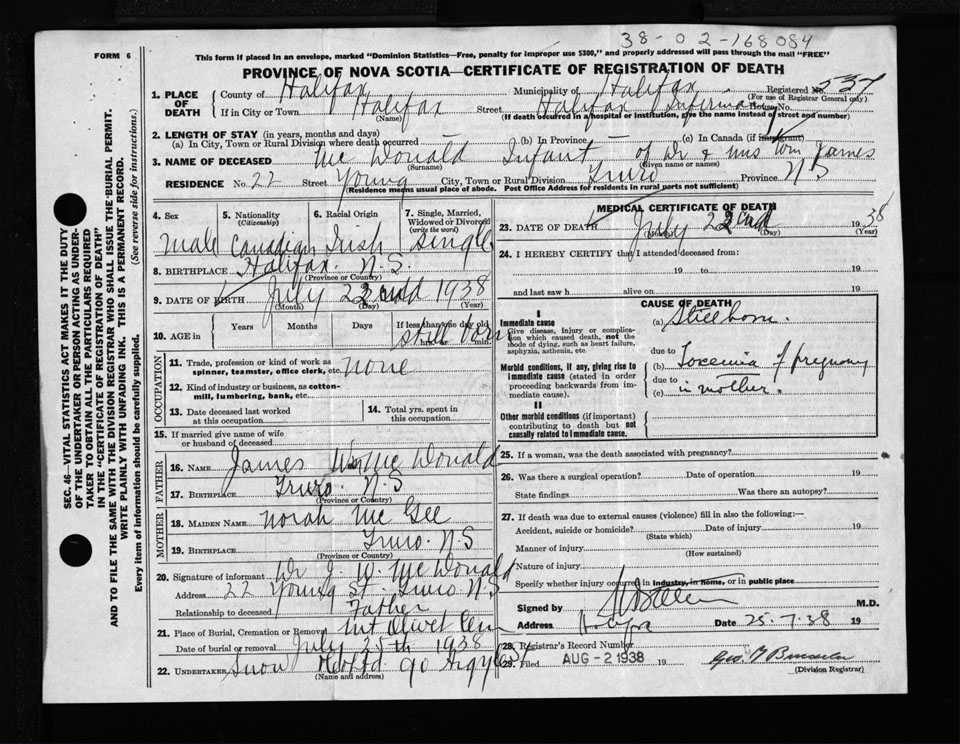 38-02-168084
FORM 6
This form if placed in an envelope, marked "Dominion Statistics—Free, penalty for improper use $300," and properly addressed will pass through the mail "FREE"
PROVINCE OF NOVA SCOTIA—CERTIFICATE OF REGISTRATION OF DEATH
1. PLACE OF DEATH
County of Halifax Municipality of Halifax Registered No. 537
(For use of Registrar General only)
If in City or Town Halifax Street Halifax Infirmary House No.
(Name) (If death occurred in a hospital or institution, give the name instead of street and number)
2. LENGTH OF STAY (in years, months and days)
(a) In City, Town or Rural Division where death occurred (b) In Province (c) In Canada (if immigrant)
3. NAME OF DECEASED Mc Donald Infant of Dr & Mrs Wm James
(Surname) (Given name or names)
RESIDENCE No. 22 Street Young City, Town or Rural Division Truro Province N S
(Residence means usual place of abode. Post Office Address for residents in rural parts not sufficient)
4. Sex
male
5. Nationality (Citizenship)
Canadian
6. Racial Origin
Irish
7. Single, Married, Widowed or Divorced (write the word)
Single
8. BIRTHPLACE Halifax N.S.
(Province or Country)
9. DATE OF BIRTH July 22nd 1938
(Month) (Day) (Year)
10. AGE in Years Months Days If less than one day old
still born
hours or min.
OCCUPATION
11. Trade, profession or kind of work as spinner, teamster, office clerk, etc. none
12. Kind of industry or business, as cotton-mill, lumbering, bank, etc.
13. Date deceased last worked at this occupation
14. Total yrs. spent in this occupation
15. If married give name of wife or husband of deceased
FATHER
16. NAME James Wm Mc Donald
17. BIRTHPLACE Truro. N.S
(Province or Country)
MOTHER
18. MAIDEN NAME Norah Mc Gee
19. BIRTHPLACE Truro. N.S
(Province or Country)
20. Signature of informant Dr J. W. Mc Donald
Address 22 Young St. Truro N.S
Relationship to deceased Father
21. Place of Burial, Cremation or Removal Mt Olivet Cem
Date of burial or removal July 25th 1938
22. UNDERTAKER Snow & Co Ltd 90 Argyle St
(Name and address)
MEDICAL CERTIFICATE OF DEATH
23. DATE OF DEATH July 22nd 1938
(Month) (Day) (Year)
24. I HEREBY CERTIFY that I attended deceased from:
19 to 19
and last saw h alive on 19
CAUSE OF DEATH
I
Immediate cause
Give disease, injury or complication which caused death, not the mode of dying, such as heart failure, asphyxia, asthenia, etc.
(a) Stillborn.
due to
Morbid conditions, if any, giving rise to immediate cause (stated in order proceeding backwards from immediate cause).
(b) Toxemia of pregnancy
due to
(c) in mother.
II
Other morbid conditions (if important) contributing to death but not causally related to immediate cause.
25. If a woman, was the death associated with pregnancy?
26. Was there a surgical operation? Date of operation 19
State findings Was there an autopsy?
27. If death was due to external causes (violence) fill in also the following:—
Accident, suicide or homicide? Date of injury 19
(State which)
Manner of injury (How sustained)
Nature of injury
Specify whether injury occurred in industry, in home, or in public place
Signed by M.D.
Address Halifax Date 25.7.38 19
28. Registrar's Record Number
29. Filed AUG -2 1938 19
(Division Registrar)
SEC. 46—VITAL STATISTICS ACT MAKES IT THE DUTY
OF THE UNDERTAKER OR PERSON ACTING AS UNDER-
TAKER TO OBTAIN ALL THE PARTICULARS REQUIRED
IN THE "CERTIFICATE OF REGISTRATION OF DEATH"
AND TO FILE THE SAME WITH THE DIVISION REGISTRAR WHO SHALL ISSUE THE BURIAL PERMIT.
WRITE PLAINLY WITH UNFADING INK. THIS IS A PERMANENT RECORD.
Every item of information should be carefully supplied. (See reverse side for instructions.)